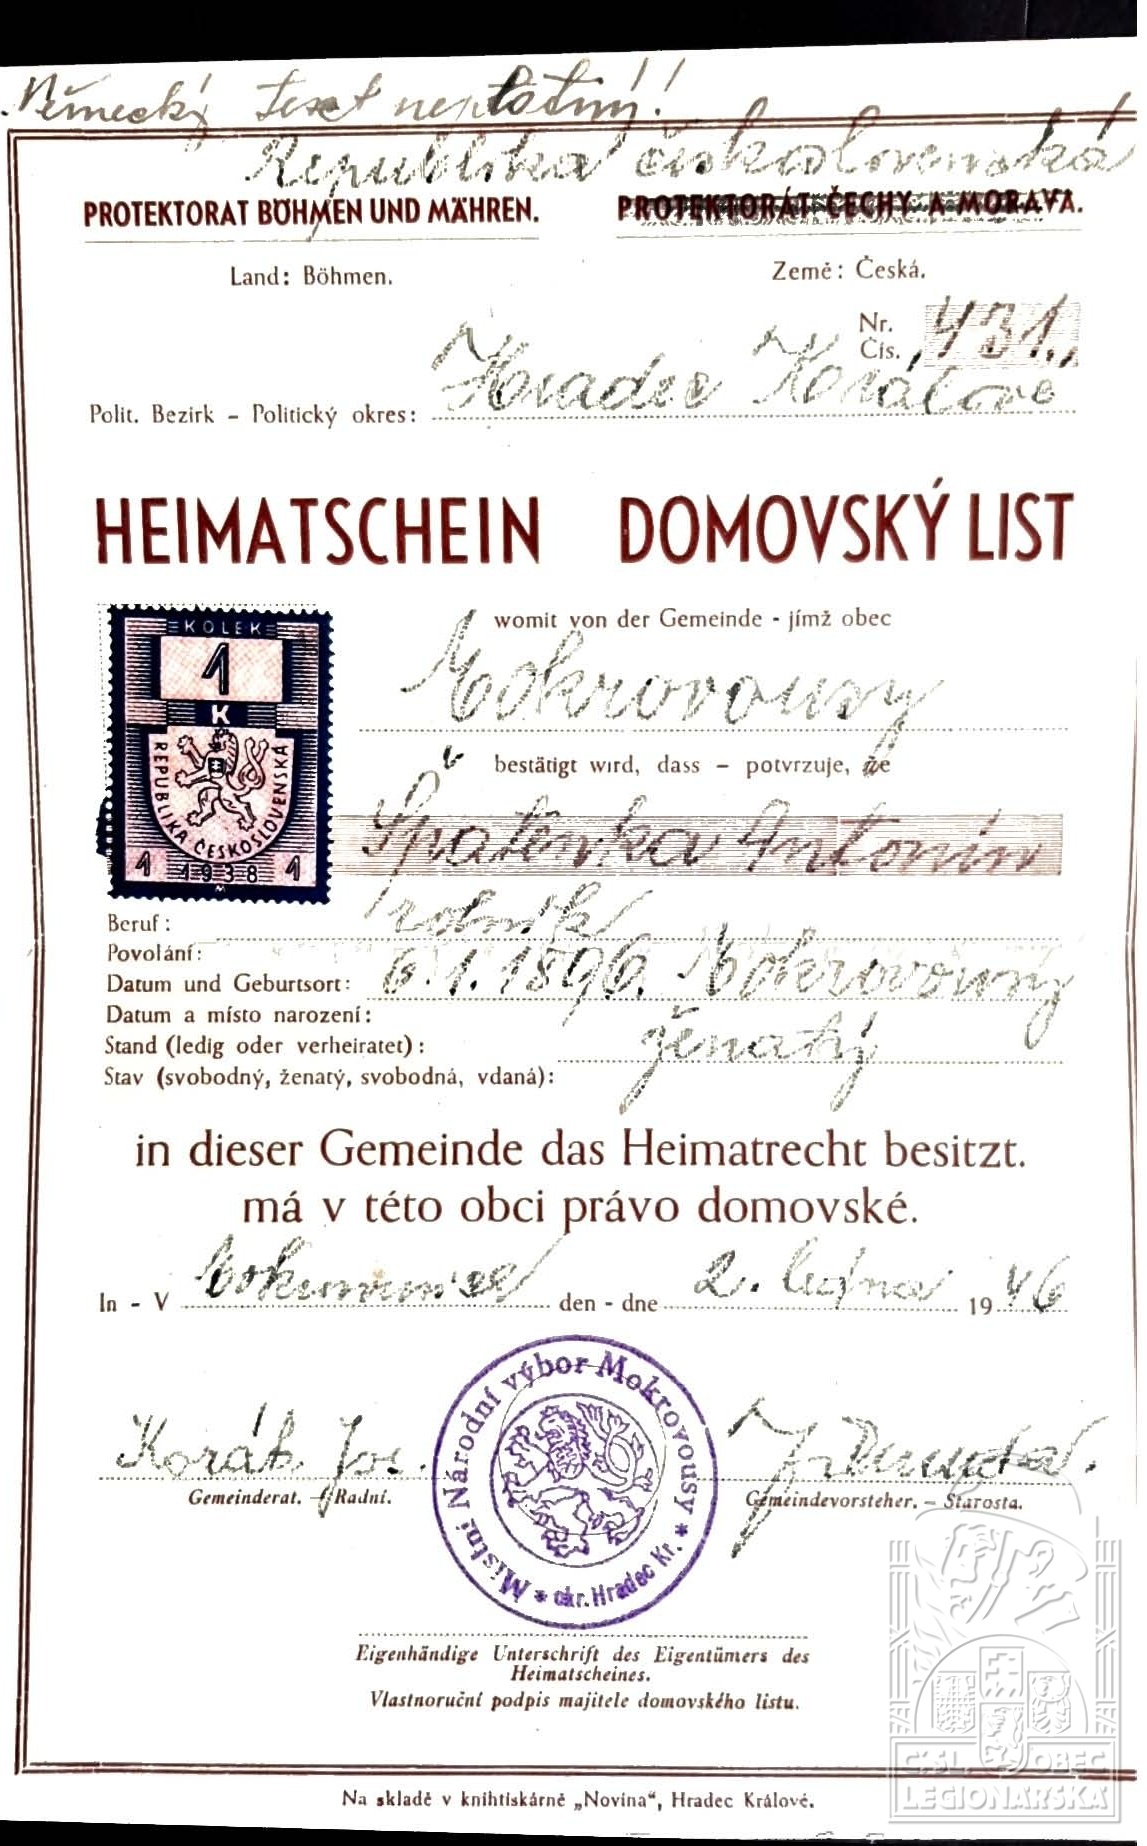 Německý text neplatný!!
Republika československá
PROTEKTORAT BÖHMEN UND MÄHREN. PROTEKTORÁT ČECHY A MORAVA.
Land: Böhmen. Země: Česká.
Nr.
Čís. 431.
Polit. Bezirk - Politický okres: Hradec Králové
HEIMATSCHEIN DOMOVSKÝ LIST
KOLEK
1
K
REPUBLIKA ČESKOSLOVENSKÁ
1 1938 1
M
womit von der Gemeinde - jímž obec
Mokrovousy
bestätigt wird, dass - potvrzuje, že
Špatenka Antonín
Beruf: rolník
Povolání:
Datum und Geburtsort: 6.1.1896. Mokrovousy
Datum a místo narození:
Stand (ledig oder verheiratet): ženatý
Stav (svobodný, ženatý, svobodná, vdaná):
in dieser Gemeinde das Heimatrecht besitzt.
má v této obci právo domovské.
In - V Mokrovousech den - dne 2. ledna 1946
Korát Jos.
Gemeinderat. - Radní. Gemeindevorsteher. - Starosta.
Místní Národní výbor Mokrovousy * okr. Hradec Kr. *
Eigenhändige Unterschrift des Eigentümers des
Heimatscheines.
Vlastnoruční podpis majitele domovského listu.
ČSL. OBEC
LEGIONÁŘSKÁ
Na skladě v knihtiskárně „Novina“, Hradec Králové.